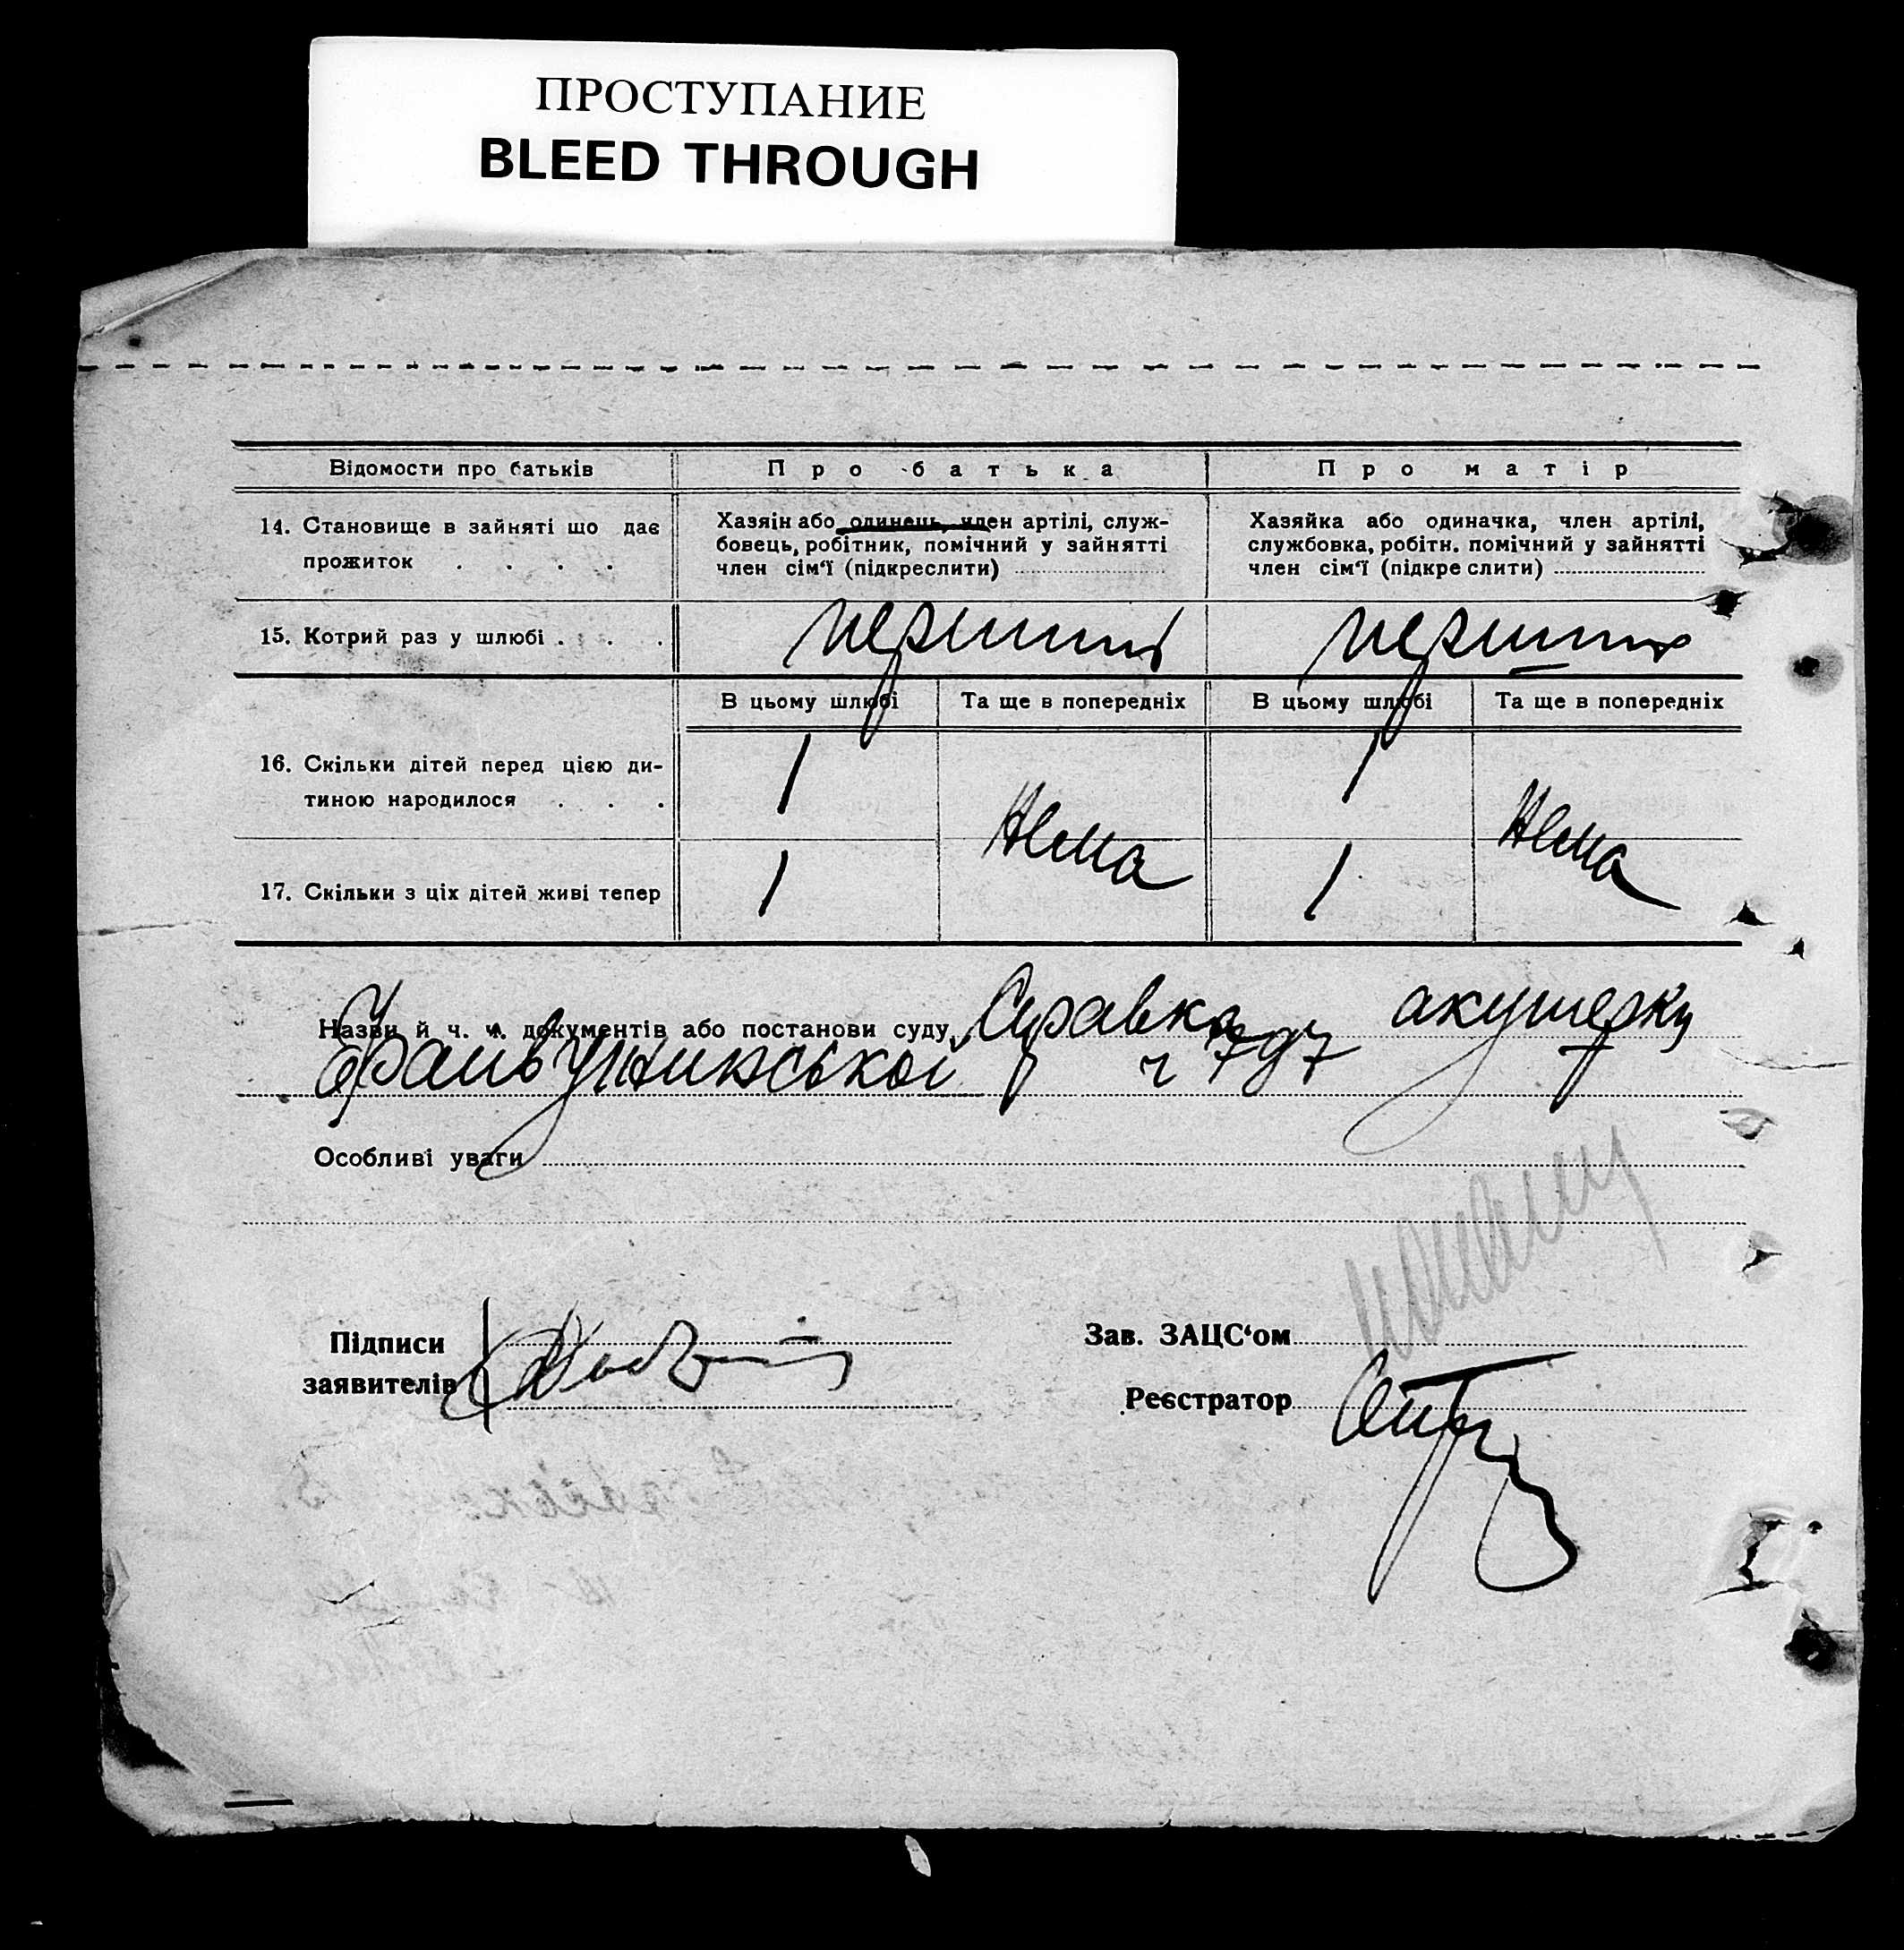 ПРОСТУПАНИЕ
BLEED THROUGH
Відомости про батьків
Про батька
Про матір
14. Становище в зайняті що дає
прожиток . . . .
Хазяін або одинець, член артілі, служ-
бовець, робітник, помічний у зайнятті
член сім'ї (підкреслити)
Хазяйка або одиначка, член артілі,
службовка, робітн. помічний у зайнятті
член сім'ї (підкреслити)
15. Котрий раз у шлюбі . . .
перший
перший
В цьому шлюбі
Та ще в попередніх
В цьому шлюбі
Та ще в попередніх
16. Скільки дітей перед цією ди-
тиною народилося . . .
1
Нема
1
Нема
17. Скільки з ціх дітей живі тепер
1
1
Назви й ч. ч. документів або постанови суду Справка акушерки
ч
Особливі уваги
Підписи
заявителів
Зав. ЗАЦС'ом
Реєстратор